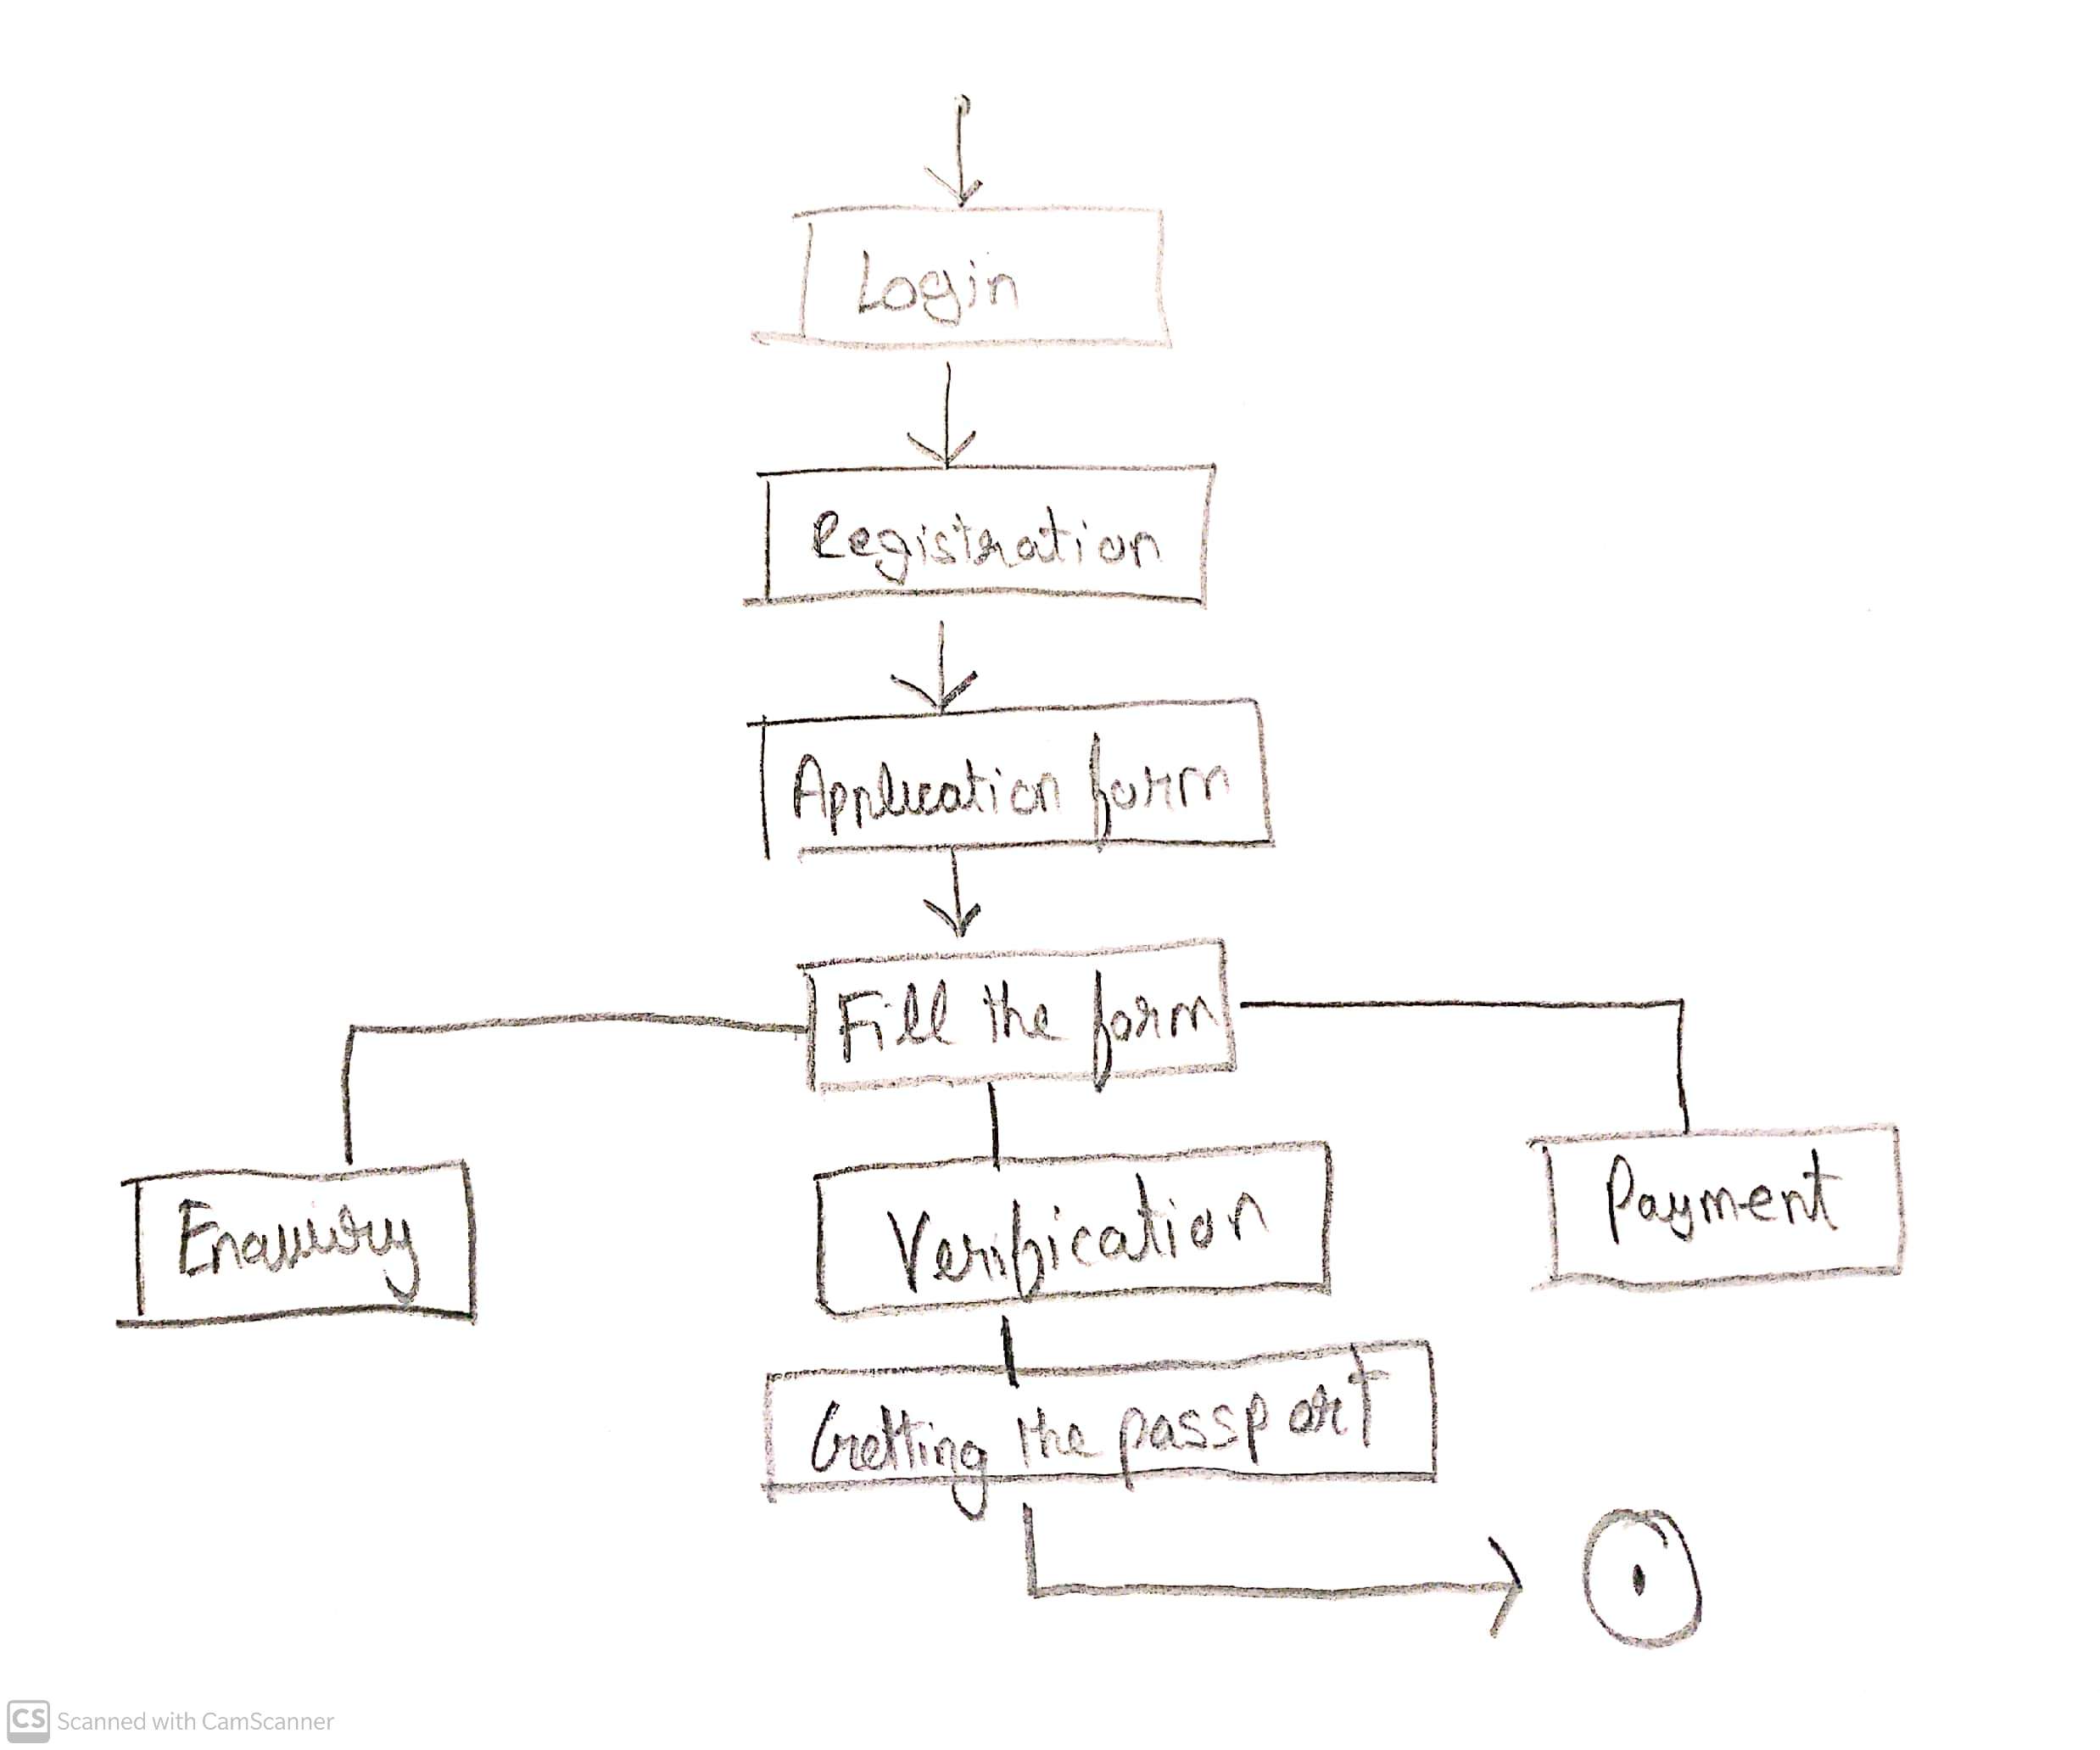 Login
Registration
Application form
Fill the form
Enquiry
Verification
Payment
Getting the passport
CS Scanned with CamScanner